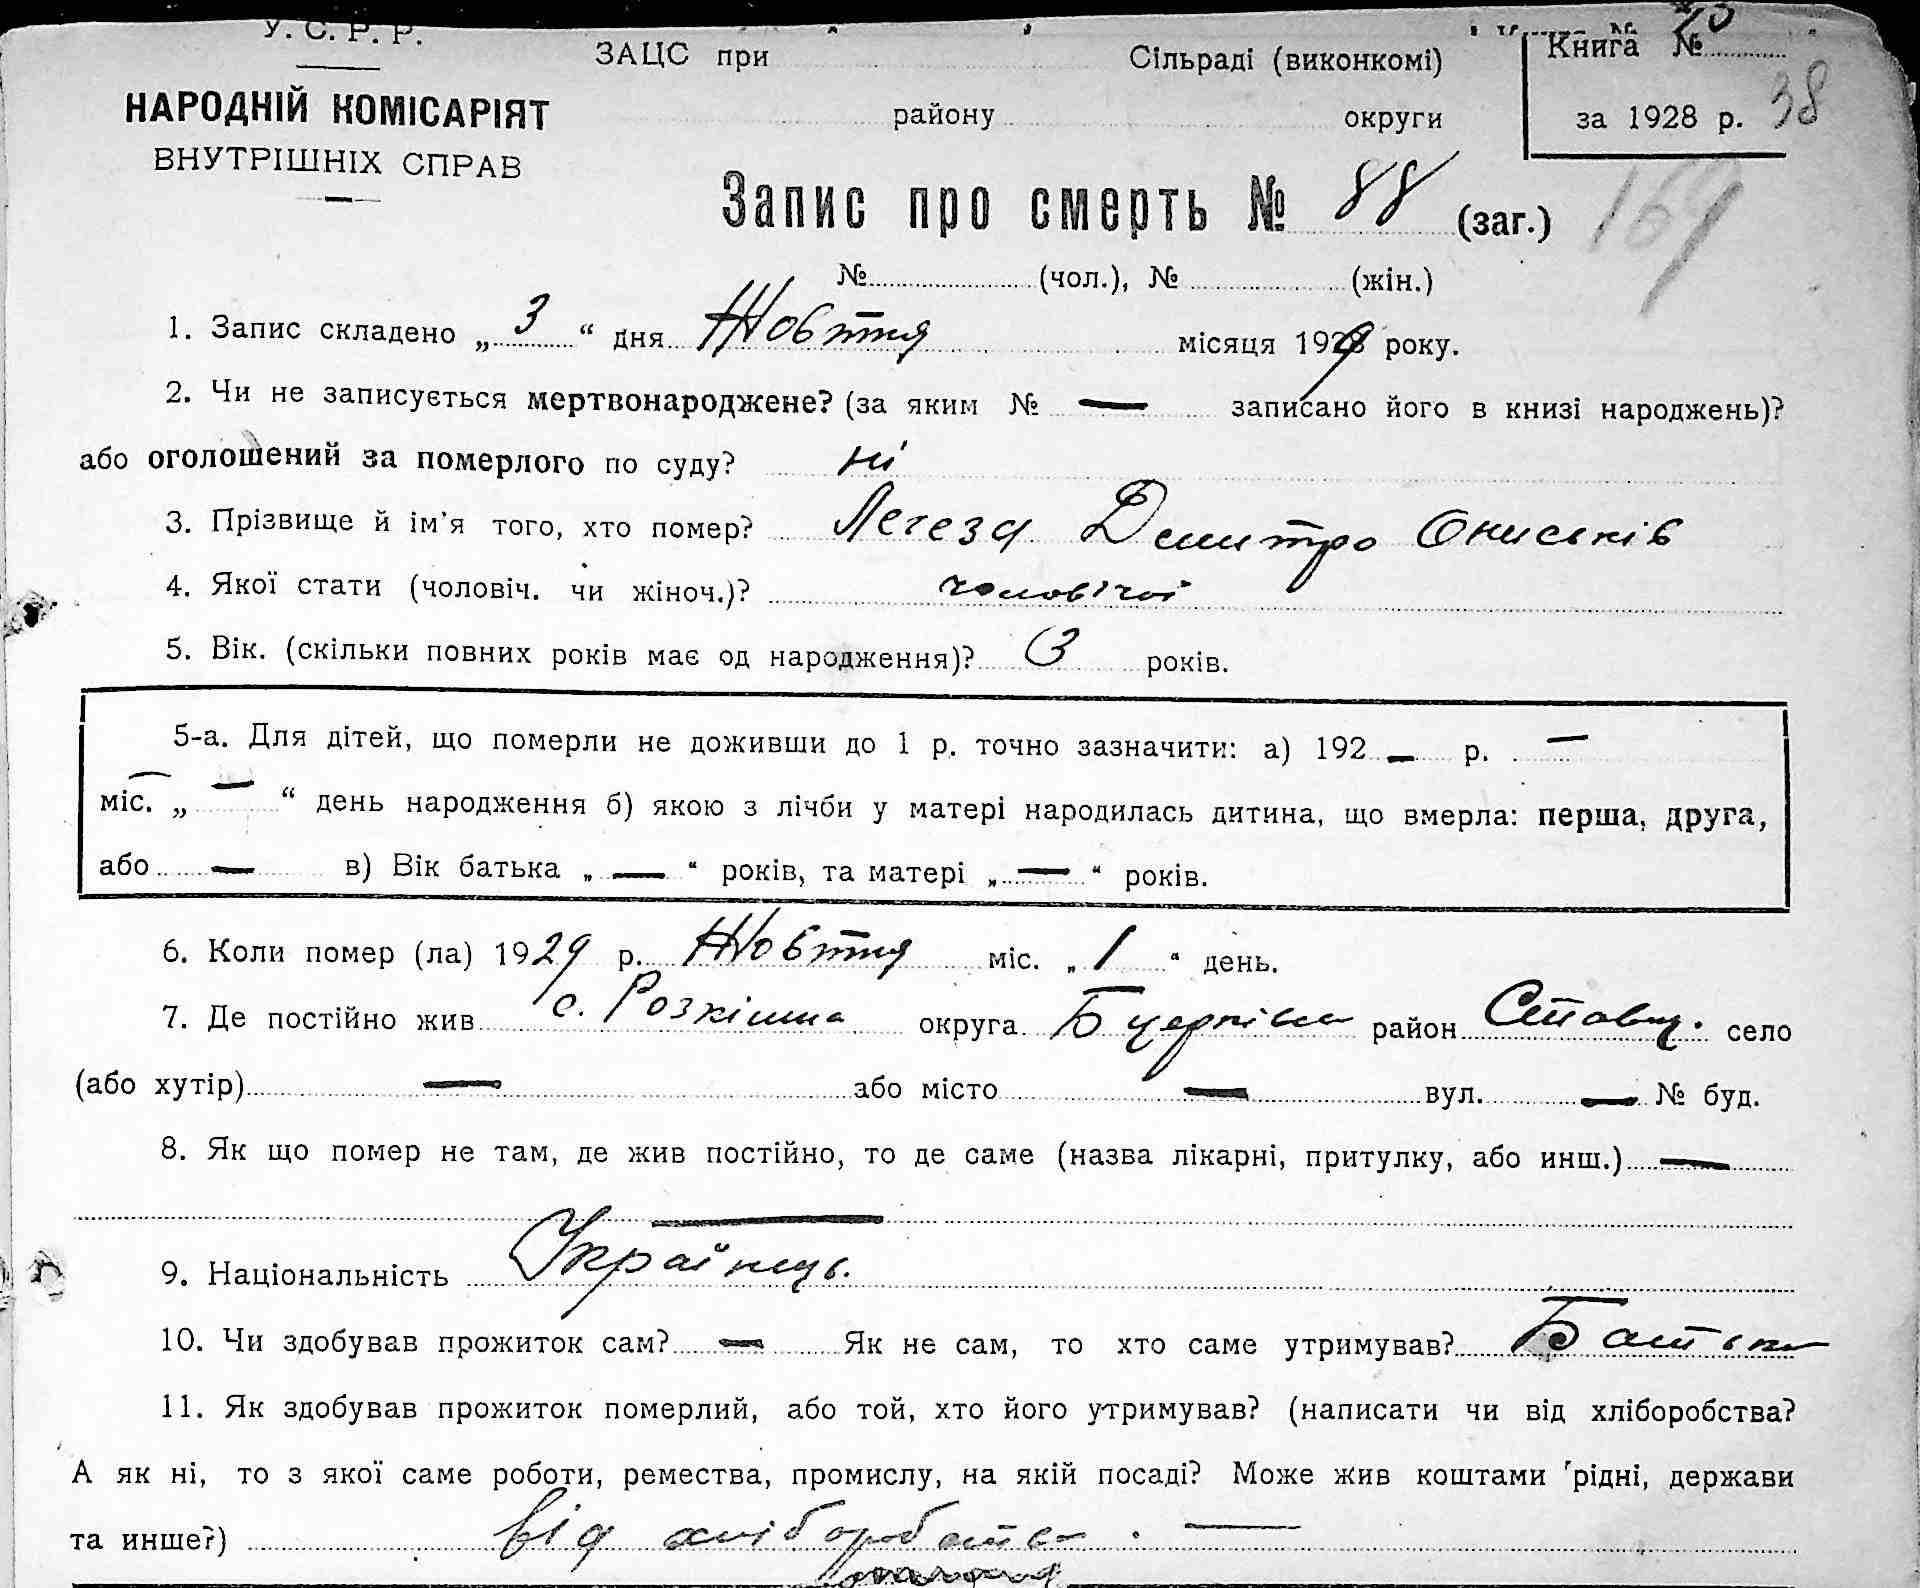 У. С. Р. Р.
НАРОДНІЙ КОМІСАРІЯТ
ВНУТРІШНІХ СПРАВ
ЗАЦС при Сільраді (виконкомі)
району округи
Книга №
за 1928 р. 38
Запис про смерть № 88 (заг.) 169
№ (чол.), № (жін.)
1. Запис складено „ 3 “ дня Жовтня місяця 1929 року.
2. Чи не записується мертвонароджене? (за яким № — записано його в книзі народжень)?
або оголошений за померлого по суду? ні
3. Прізвище й ім'я того, хто помер? Легеза Дмитро Ониськів
4. Якої стати (чоловіч. чи жіноч.)? чоловічої
5. Вік. (скільки повних років має од народження)? 3 років.
5-а. Для дітей, що померли не доживши до 1 р. точно зазначити: а) 192 — р. —
міс. „ — “ день народження б) якою з лічби у матері народилась дитина, що вмерла: перша, друга,
або — в) Вік батька „ — “ років, та матері „ — “ років.
6. Коли помер (ла) 1929 р. Жовтня міс. „ 1 “ день.
7. Де постійно жив с. Розкішна округа Бцерківс район Ставищ. село
(або хутір) — або місто — вул. — № буд.
8. Як що помер не там, де жив постійно, то де саме (назва лікарні, притулку, або инш.) —
—
9. Національність Українець.
10. Чи здобував прожиток сам? — Як не сам, то хто саме утримував? Батьки
11. Як здобував прожиток померлий, або той, хто його утримував? (написати чи від хліборобства?
А як ні, то з якої саме роботи, ремества, промислу, на якій посаді? Може жив коштами рідні, держави
та инше?) від хліборобства. —